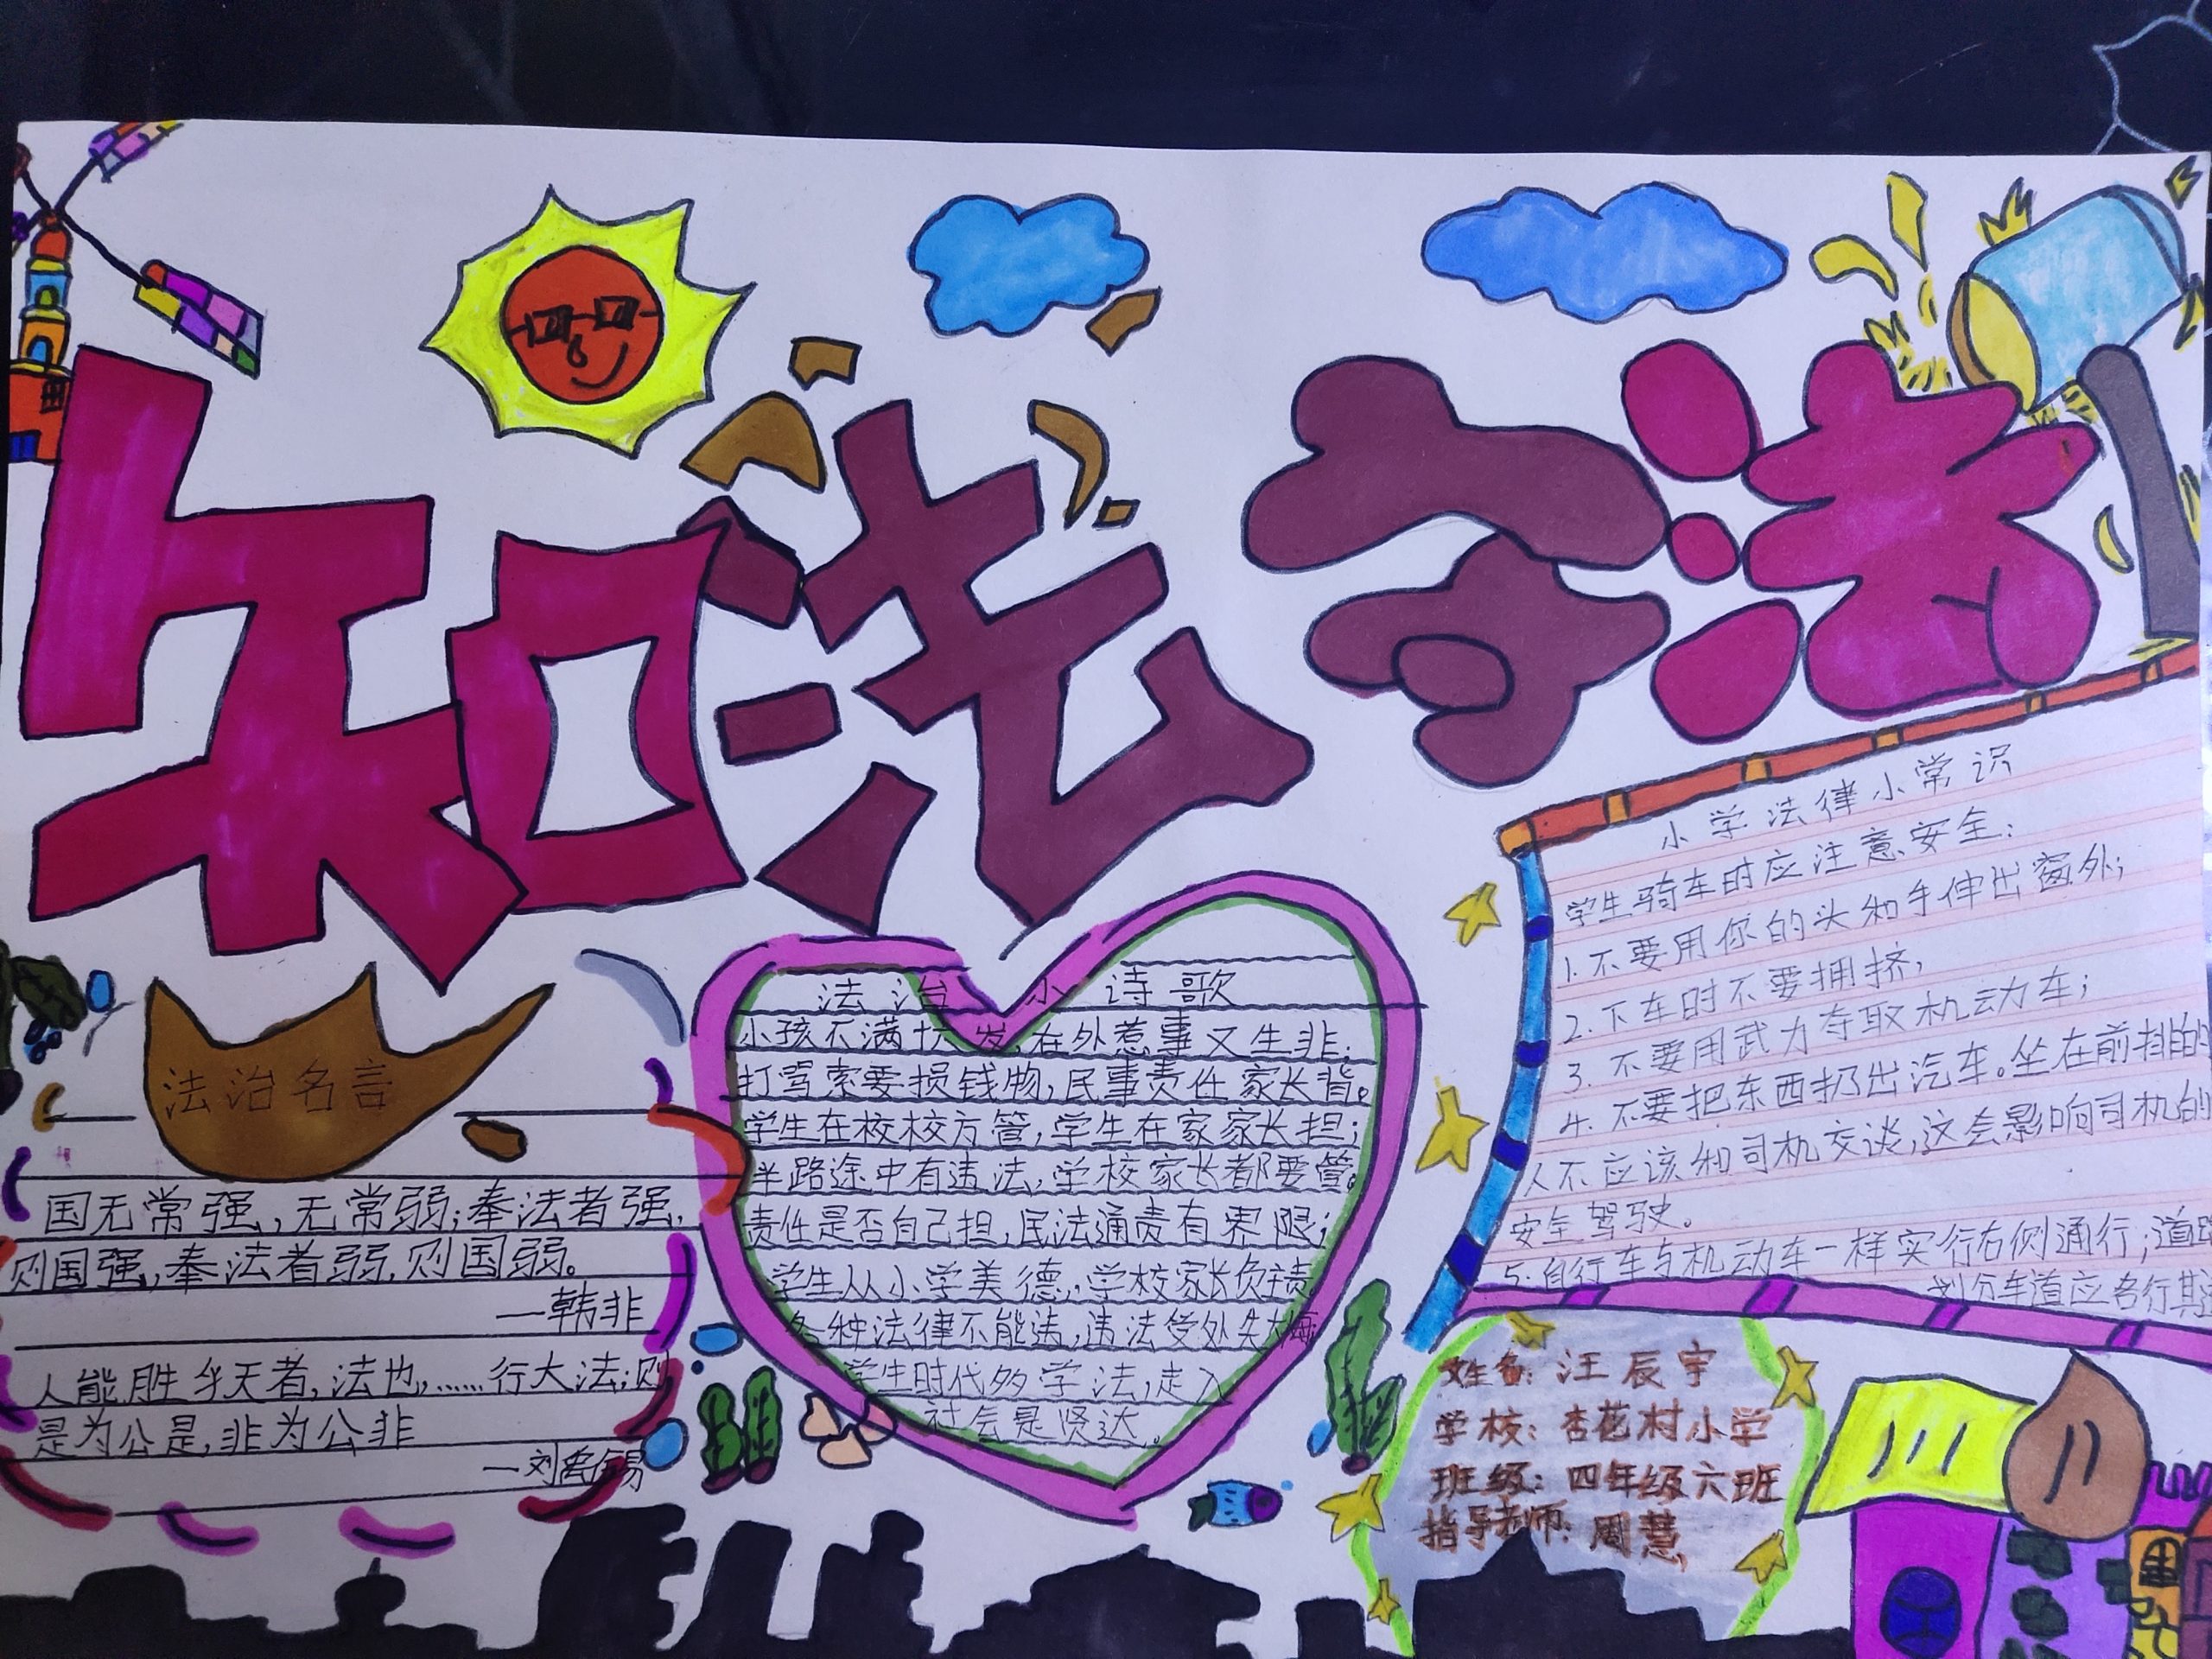 知法守法
法治名言
国无常强,无常弱;奉法者强,
则国强,奉法者弱,则国弱。
—韩非
人能胜乎天者,法也,……行大法;则
是为公是,非为公非
—刘禹锡
法治小诗歌
小孩不满 发,在外惹事又生非;
打骂索要损钱物,民事责任家长背。
学生在校校方管,学生在家家长担;
半路途中有违法,学校家长都要管。
责任是否自己担,民法通责有界限;
学生从小学美德,学校家长负主责。
各种法律不能违,违法受处失 
学生时代多学法,走入
社会是贤达。
小学法律小常识
学生骑车时应注意安全:
1.不要用你的头和手伸出窗外;
2.下车时不要拥挤,
3.不要用武力夺取机动车;
4.不要把东西扔出汽车。坐在前排的
人不应该和司机交谈,这会影响司机的
安全驾驶。
5.自行车与机动车一样实行右侧通行;道路
划分车道应各行其道
姓名:汪辰宇
学校:杏花村小学
班级:四年级六班
指导老师:周慧